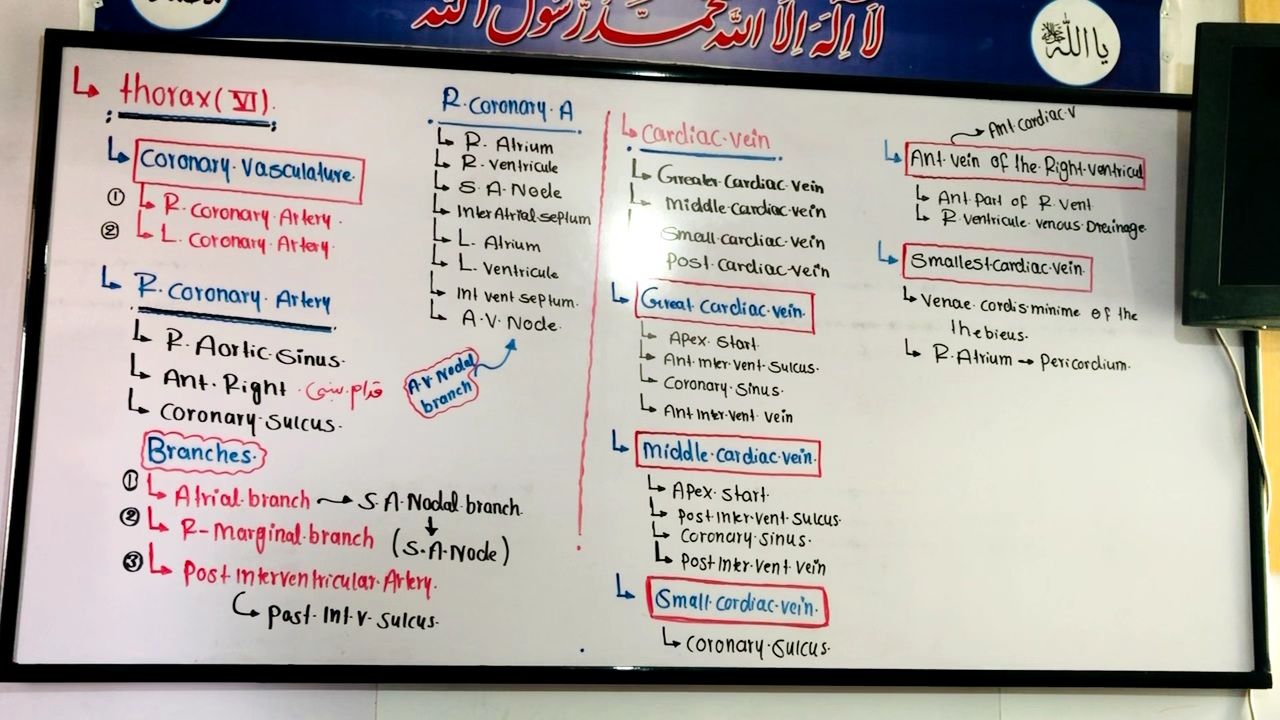 لا اله الا الله محمد رسول الله
يا الله
thorax (VI).
Coronary vasculature.
① R. coronary Artery.
② L. coronary Artery.
R. coronary Artery
R. Aortic sinus.
Ant. Right.
coronary sulcus.
Branches.
① Atrial branch → S.A. Nodal branch.
② R-marginal branch (S.A. Node)
③ post interventricular Artery.
post. Int v sulcus.
R. coronary A
R. Atrium
R. ventricule
S A Node
InterAtrial septum
L. Atrium
L. ventricule
Int vent septum.
A.V. Node.
A.V Nodal
branch
cardiac vein
Greater cardiac vein
middle cardiac vein
Small cardiac vein
post cardiac vein
Great cardiac vein.
Apex start
Ant inter vent sulcus.
Coronary sinus.
Ant inter vent vein
middle cardiac vein.
Apex start.
post inter vent sulcus.
Coronary sinus.
post inter vent vein
Small cardiac vein.
coronary sulcus.
Ant cardiac v
Ant vein of the Right ventricul
Ant part of R vent
R ventricule venous Dreinage.
Smallest cardiac vein.
venae cordis minime of the
thebieus.
R. Atrium → pericordium.